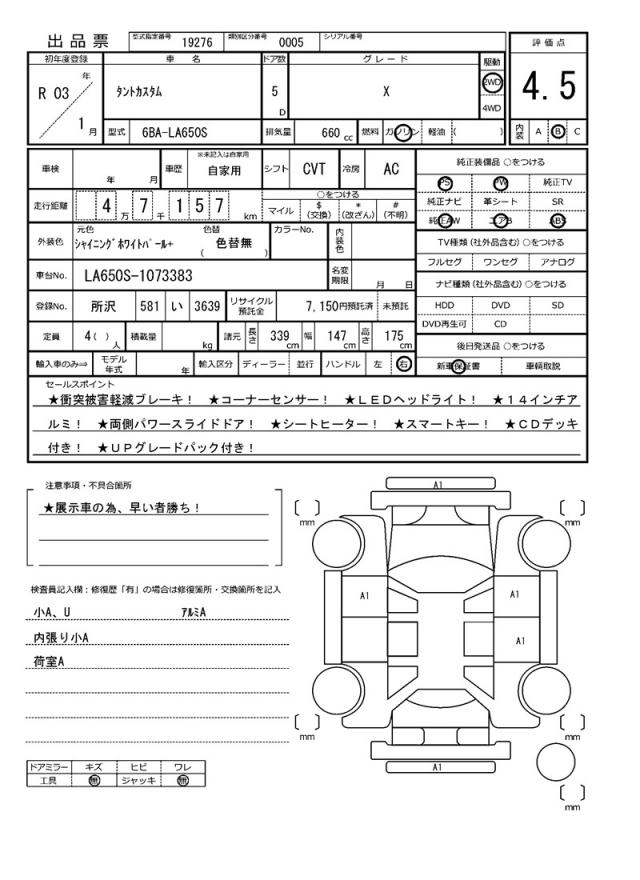 出品票 型式指定番号 19276 類別区分番号 0005 シリアル番号
評価点
4.5
内装 A B C
初年度登録 車名 ドア数 グレード 駆動
R 03 年 1 月 タントカスタム 5 D X 2WD 4WD
型式 6BA-LA650S 排気量 660 cc 燃料 ガソリン 軽油 ( )
車検 年 月 車歴 ※未記入は自家用 自家用 シフト CVT 冷房 AC
走行距離 4 万 7 千 1 5 7 km
○をつける
マイル $ (交換) * (改ざん) # (不明)
外装色 元色 シャイニングホワイトパール+ 色替 ( 色替無 ) カラーNo. 内装色
車台No. LA650S-1073383 名変期限 月 日
登録No. 所沢 581 い 3639 リサイクル預託金 7,150円預託済 未預託
定員 4( ) 人 積載量 kg 諸元 長さ 339 cm 幅 147 cm 高さ 175 cm
輸入車のみ⇒ モデル年式 年 輸入区分 ディーラー 並行 ハンドル 左 右
純正装備品 ○をつける
PS PW 純正TV
純正ナビ 革シート SR
純正AW エアB ABS
TV種類(社外品含む)○をつける
フルセグ ワンセグ アナログ
ナビ種類(社外品含む)○をつける
HDD DVD SD
DVD再生可 CD
後日発送品 ○をつける
新車保証書 車輌取説
セールスポイント
★衝突被害軽減ブレーキ! ★コーナーセンサー! ★LEDヘッドライト! ★14インチア
ルミ! ★両側パワースライドドア! ★シートヒーター! ★スマートキー! ★CDデッキ
付き! ★UPグレードパック付き!
注意事項・不具合箇所
★展示車の為、早い者勝ち!
検査員記入欄:修復歴「有」の場合は修復箇所・交換箇所を記入
小A、U アルミA
内張り小A
荷室A
ドアミラー キズ ヒビ ワレ
工具 無 ジャッキ 無
A1
mm mm
A1 A1
A1
mm mm
A1
mm